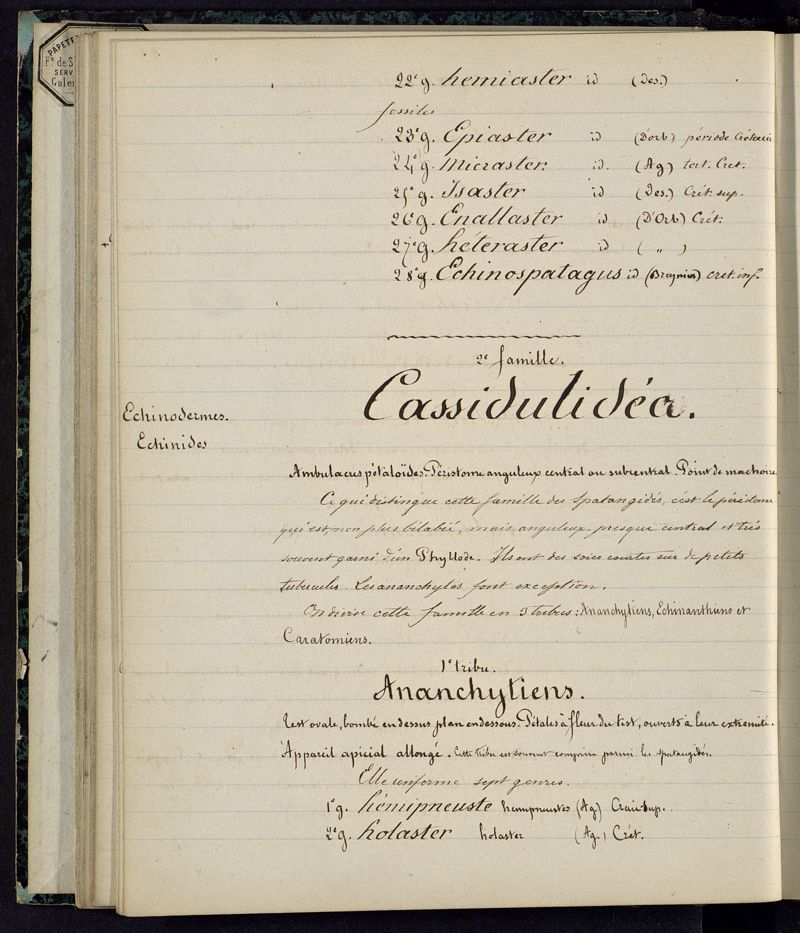 PAPETE
Fe. de S
SERV
Galer
22e g. hemiaster id (Des.)
fossiles
23e g. Epiaster id (Dorb) période Crétacée
24e g. Micraster id. (Ag) tert. Cret.
25e g. Isaster id (Des.) Crét. sup.
26e g. Enallaster id (D'Orb) Crét.
27e g. hétéraster id ( „ )
28e g. Echinospatagus id (Breynius) cret. inf.
2e famille.
Cassidulidéa.
Echinodermes.
Echinides
Ambulacres pétaloïdes. Péristome anguleux central ou subcentral. Point de machoire
Ce qui distingue cette famille des Spatangidés, c'est le péristome
qui est, non plus bilabié, mais anguleux, presque central et très
souvent garni d'un Phyllode. Ils ont des soies courtes sur de petits
tubercules. Les ananchytes font exception.
On divise cette famille en 3 tribus: Ananchytiens, Echinanthiens et
Caratomiens.
1e tribu.
Ananchytiens.
Test ovale, bombé en dessus plan en dessous. Pétales à fleur du test, ouverts à leur extremité.
Appareil apicial allongé. Cette tribu est souvent comprise parmi les spatangidés.
Elle renferme sept genres.
1e g. hémipneuste hemipneustes (Ag) Craie sup.
2e g. holaster holaster (Ag.) Crét.